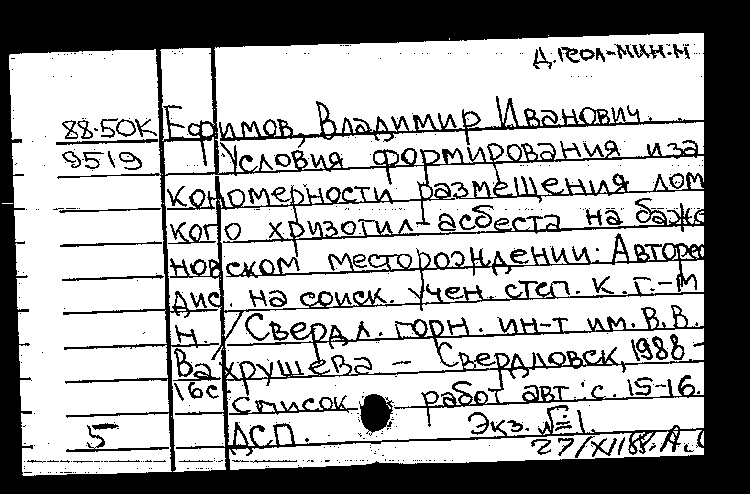 Д. геол-мин.н
88-50К Ефимов, Владимир Иванович.
8519 Условия формирования и за
кономерности размещения лом
кого хризотил-асбеста на баже
новском месторождении: Авторес
дис. на соиск. учен. степ. к. г.-м
н. / Свердл. горн. ин-т им. В.В.
Вахрушева – Свердловск, 1988.-
16с Список работ авт.: с. 15-16.
5 ДСП. Экз. №1.
27/XII88. А.